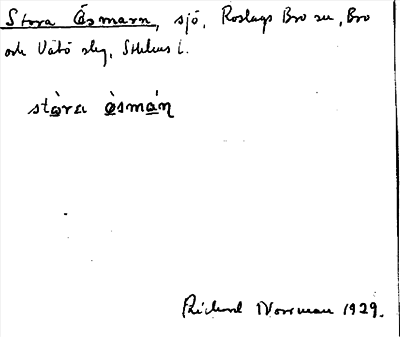 Stora Åsmarn, sjö, Roslags Bro sn, Bro
och Vätö slg, Sthlms l.
stò̱ra ò̱smá̱ṇ
Rickard Norrman 1929.